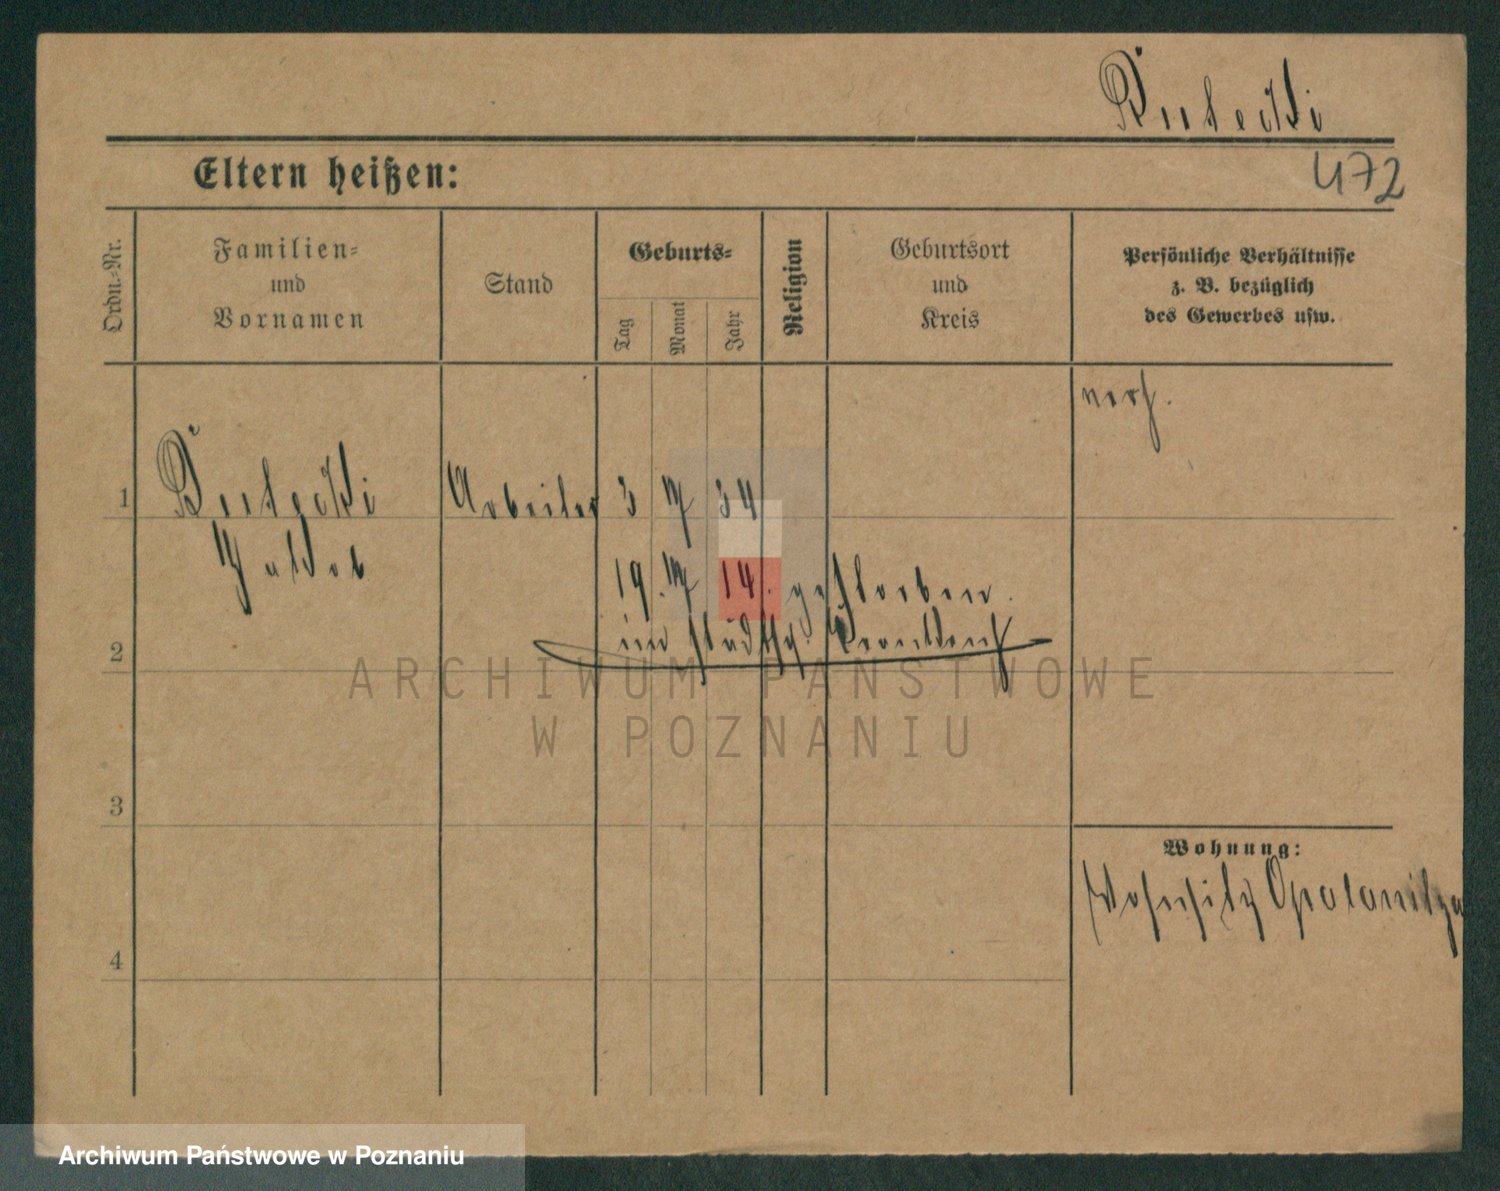 Rutecki
472
Eltern heißen:
Ordn.-Nr.
Familien-
und
Vornamen
Stand
Geburts-
Tag
Monat
Jahr
Religion
Geburtsort
und
Kreis
Persönliche Verhältnisse
z. B. bezüglich
des Gewerbes usw.
verh.
1
Rutecki
Arbeiter 3 7 34
Jakob
19. 7. 14. gestorben
im städtsch. Krankenh
2
ARCHIWUM PAŃSTWOWE
W POZNANIU
3
Wohnung:
Wohnsitz Opalenitza
4
Archiwum Państwowe w Poznaniu